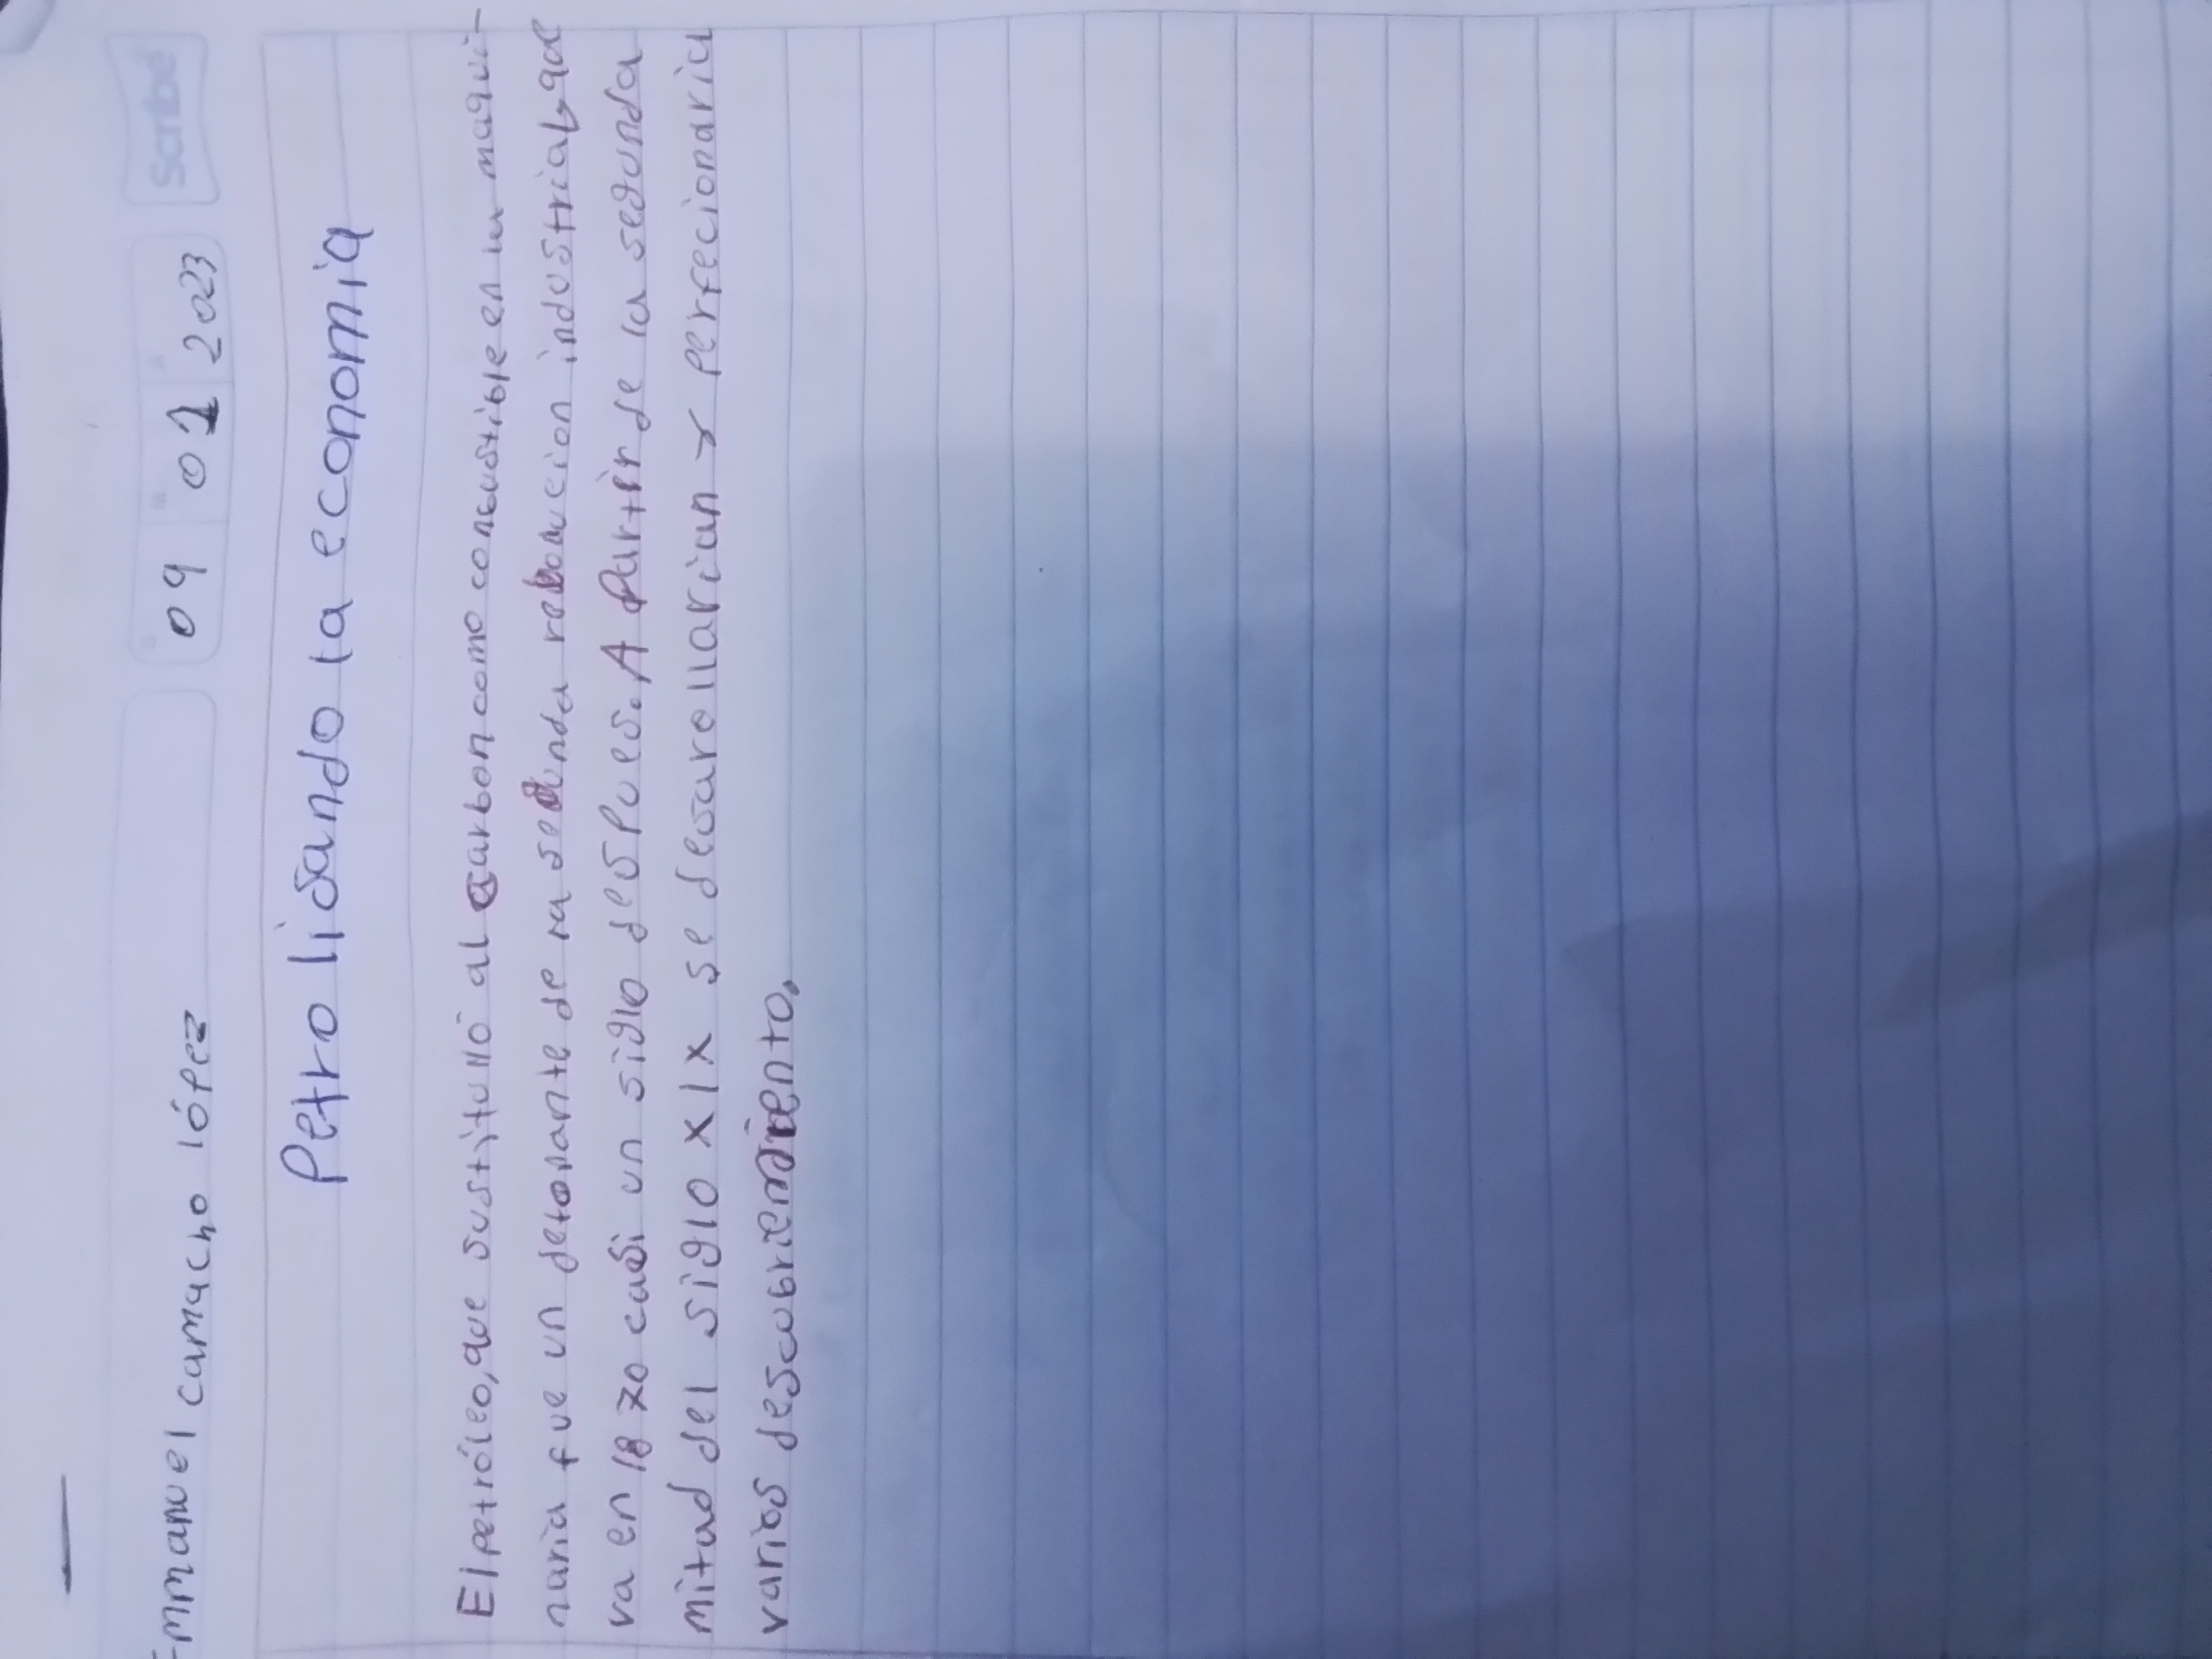 Emmanuel camacho lópez
09 01 2023
Scribe
Petro lisando la economia
El petróleo, que sustitulló al carbon como conbustible en la maqui-
naria fue un detonante de la segunda revolucion industrial, que
va en 1870 casi un siglo despues. A partir de la segunda
mitad del siglo XIX se desarollarian y perfecionaria
varios descubriemiento.